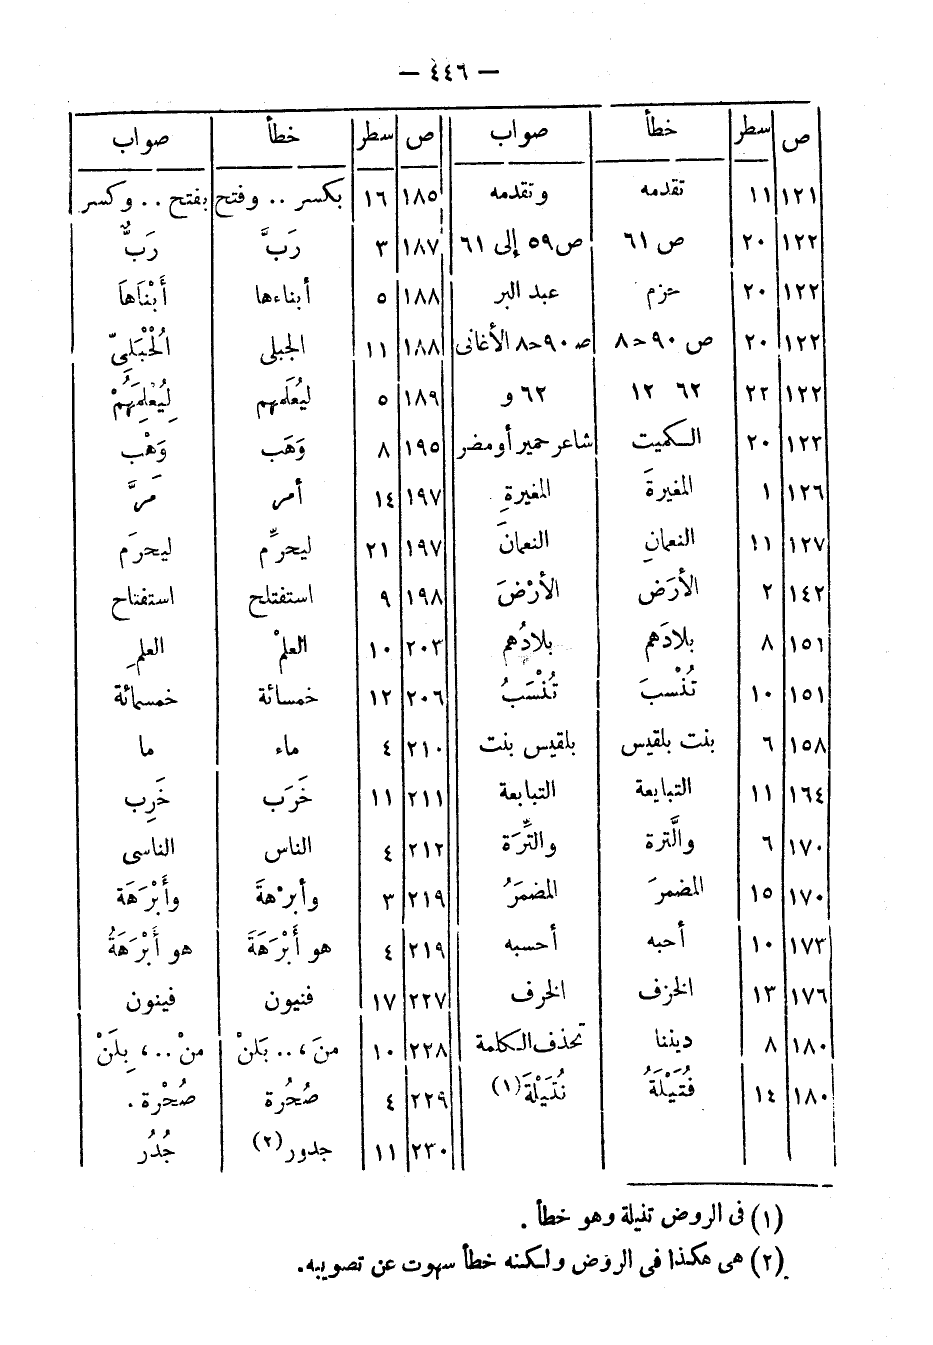 — ٤٤٦ —
ص سطر خطأ صواب ص سطر خطأ صواب
١٢١ ١١ تقدمه وتقدمه ١٨٥ ١٦ بكسر .. وفتح بفتح .. وكسر
١٢٢ ٢٠ ص ٦١ ص ٥٩ إلى ٦١ ١٨٧ ٣ رَبَّ رَبٌّ
١٢٢ ٢٠ حزم عبد البر ١٨٨ ٥ أبناءها أَبْنَاهَا
١٢٢ ٢٠ ص ٩٠ ح٨ ص ٩٠ ح٨ الأغانى ١٨٨ ١١ الجبلى الْحُبْلَىّ
١٢٢ ٢٢ ٦٢ ١٢ ٦٢ و ١٨٩ ٥ ليُعلَمهم لِيُعْلِمَهُمْ
١٢٣ ٢٠ الكميت شاعر حمير أو مضر ١٩٥ ٨ وَهَب وَهْب
١٢٦ ١ المغيرةَ المغيرةِ ١٩٧ ١٤ أمر مَرَّ
١٢٧ ١١ النعمانِ النعمانَ ١٩٧ ٢١ ليحرِّم ليحرَم
١٤٢ ٢ الأَرَض الأرْضَ ١٩٨ ٩ استفتلح استفتاح
١٥١ ٨ بلادَهم بلادُهم ٢٠٣ ١٠ العلمْ العلمِ
١٥١ ١٠ تُنْسبَ تُنْسَبُ ٢٠٦ ١٢ خمسائة خمسمائة
١٥٨ ٦ بنت بلقيس بلقيس بنت ٢١٠ ٤ ماء ما
١٦٤ ١١ التبايعة التبابعة ٢١١ ١١ خَرَب خَرِب
١٧٠ ٦ والَّترة والتِّرَة ٢١٢ ٤ الناس الناسى
١٧٠ ١٥ المضمرَ المضمَرُ ٢١٩ ٣ وأبرْهةَ وأَبْرَهَة
١٧٣ ١٠ أحبه أحسبه ٢١٩ ٤ هو أَبْرَهَةَ هو أَبْرَهَةُ
١٧٦ ١٣ الخزف الخرف ٢٢٧ ١٧ فنيون فينون
١٨٠ ٨ ديننا تحذف الكلمة ٢٢٨ ١٠ منَ ،.. بَلنْ منْ ..، بِلَنْ
١٨٠ ١٤ فُتَيْلَةُ نُتَيْلَةَ (١) ٢٢٩ ٤ صُحُرة صُحْرة .
٢٣٠ ١١ جدور (٢) جُدُر
(١) فى الروض تنيلة وهو خطأ .
(٢) هى هكذا فى الروض ولكنه خطأ سهوت عن تصويبه.